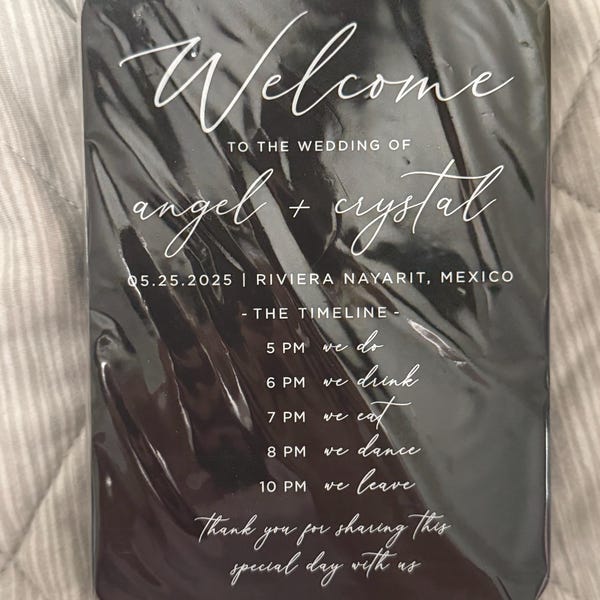 Welcome
TO THE WEDDING OF
angel + crystal
05.25.2025 | RIVIERA NAYARIT, MEXICO
- THE TIMELINE -
5 PM we do
6 PM we drink
7 PM we eat
8 PM we dance
10 PM we leave
thank you for sharing this
special day with us